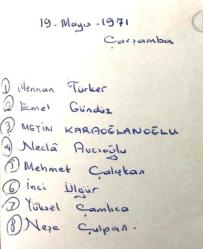 19-Mayıs-1971
Çarşamba
① Mennan Türker
② Emel Gündüz
③ METİN KARAOĞLANOĞLU
④ Neclâ Avcıoğlu
⑤ Mehmet Çalışkan
⑥ İnci Ülgür
⑦ Yüksel Çamlıca
⑧ Neşe Çulpan.